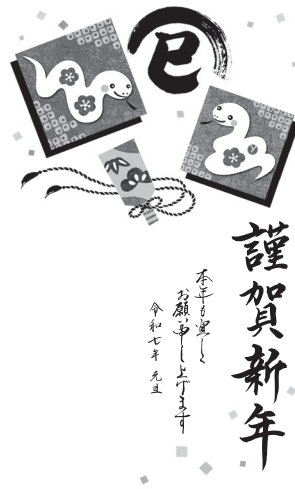 巳
謹賀新年
本年も宜しく
お願い申し上げます
令和七年 元旦